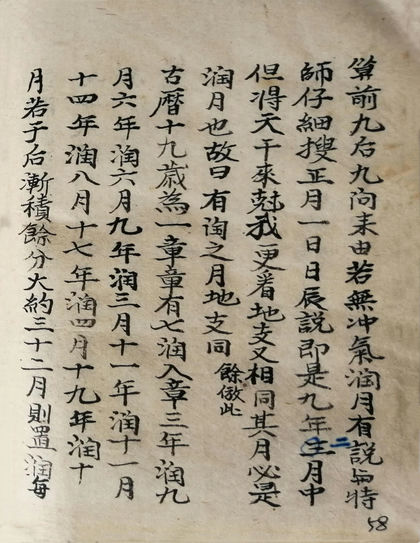 算前九后九向来由若無冲氣润月有説与特
師仔細搜正月一日日辰説即是九年二月中
但淂天干來尅我更看地支又相同其月必是
润月也故曰有润之月地支同餘倣此
古曆十九歲為一章章有七润入章三年润九
月六年润六月九年润三月十一年润十一月
十四年润八月十七年润四月十九年润十
月若于后漸積餘分大約三十二月則置润每
58